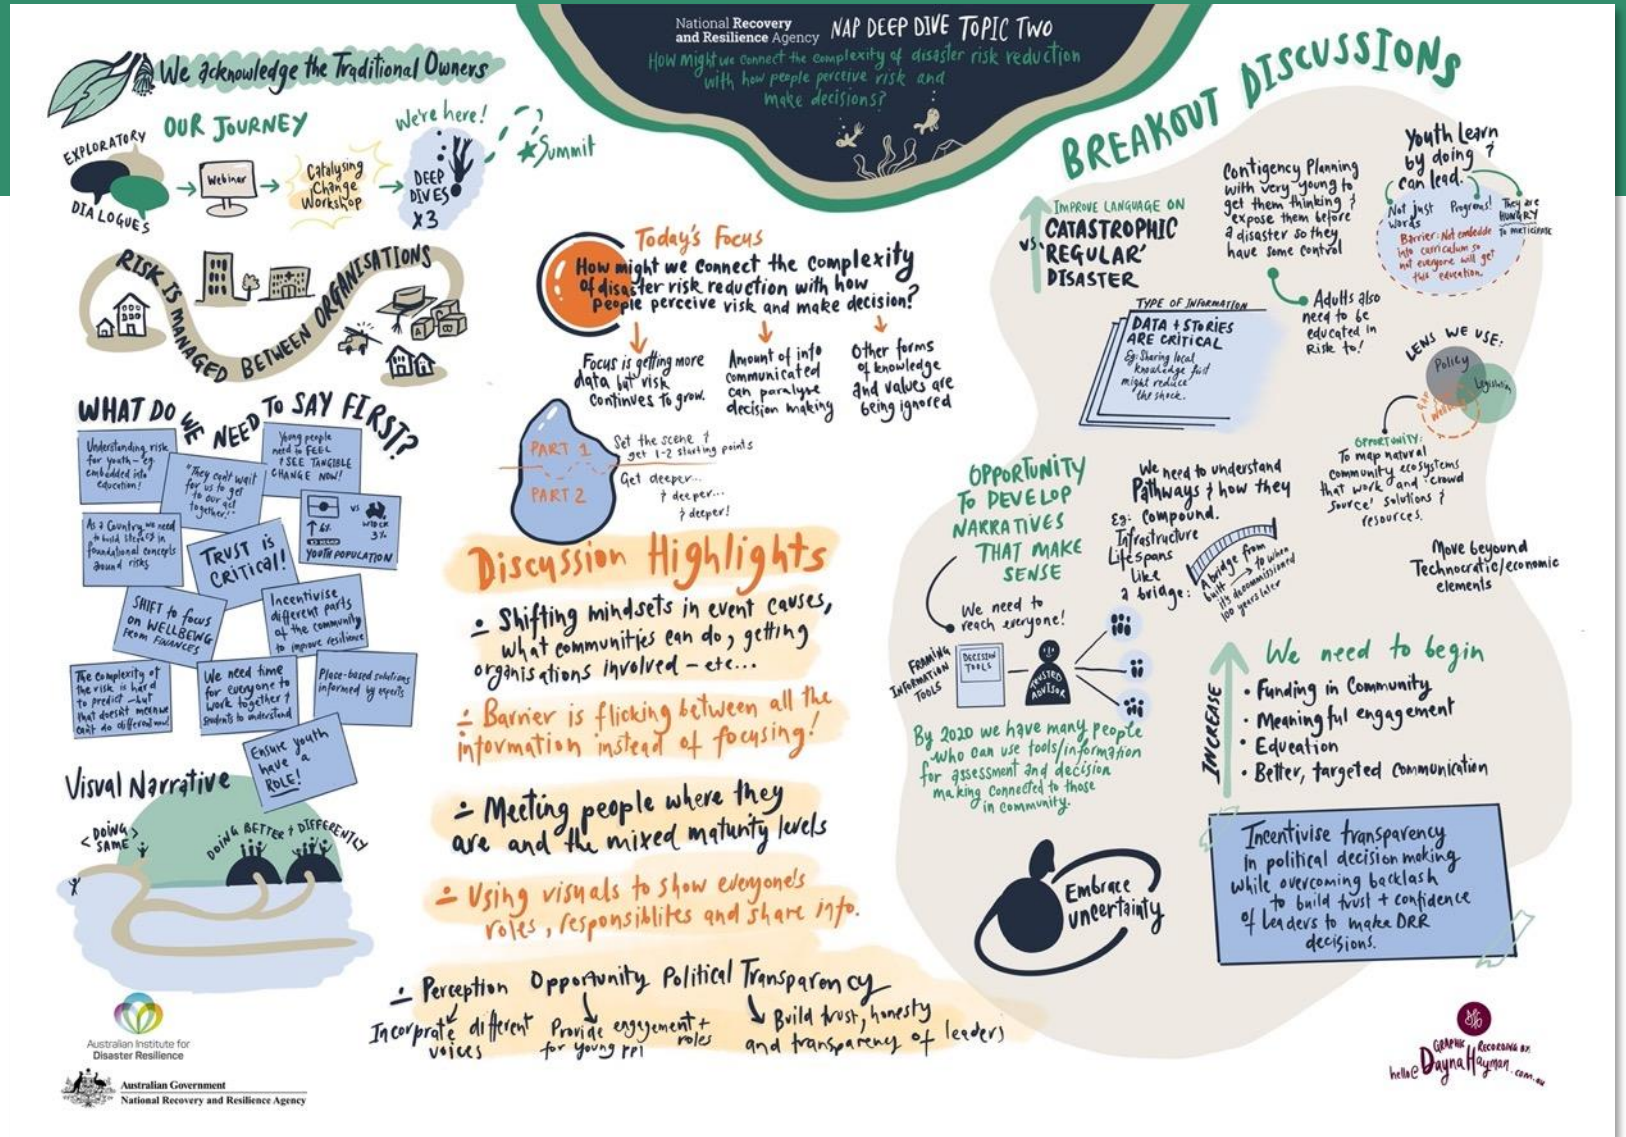 National Recovery
and Resilience Agency
NAP DEEP DIVE TOPIC TWO
How might we connect the complexity of disaster risk reduction
with how people perceive risk and
make decisions?
We acknowledge the Traditional Owners
OUR JOURNEY
EXPLORATORY
DIALOGUES
Webinar
Catalysing
Change
Workshop
We're here!
DEEP
DIVES
X3
Summit
RISK IS MANAGED BETWEEN ORGANISATIONS
WHAT DO WE NEED TO SAY FIRST?
Understanding risk
for youth - eg.
embedded into
education!
"They can't wait
for us to get
to our act
together!"
Young people
need to FEEL
+ SEE TANGIBLE
CHANGE NOW!
As a Country we need
to build
foundational concepts
around risks
TRUST is
CRITICAL!
vs
6%
3%
YOUTH POPULATION
SHIFT to focus
on WELLBEING
FROM FINANCES
Incentivise
different parts
of the community
to improve resilience
The complexity of
the risk is hard
to predict - but
that doesn't mean we
can't do different now!
We need time
for everyone to
work together &
students to understand
Place-based solutions
informed by experts
Ensure youth
have a
ROLE!
Visual Narrative
< DOING >
SAME
DOING BETTER + DIFFERENTLY
Australian Institute for
Disaster Resilience
Australian Government
National Recovery and Resilience Agency
Today's Focus
How might we connect the complexity
of disaster risk reduction with how
people perceive risk and make decision?
Focus is getting more
data but risk
continues to grow.
Amount of info
communicated
can paralyse
decision making
Other forms
of knowledge
and values are
being ignored
PART 1
Set the scene &
get 1-2 starting points
PART 2
Get deeper...
& deeper...
& deeper!
Discussion Highlights
Shifting mindsets in event causes,
what communities can do, getting
organisations involved - etc...
Barrier is flicking between all the
information instead of focusing!
Meeting people where they
are and the mixed maturity levels
Using visuals to show everyone's
roles, responsiblites and share info.
Perception Opportunity Political Transparency
Incorprate different
voices
Provide engagement +
roles
for young ppl
Build trust, honesty
and transparency of leaders
BREAKOUT DISCUSSIONS
IMPROVE LANGUAGE ON
CATASTROPHIC
vs. 'REGULAR'
DISASTER
Contigency Planning
with very young to
get them thinking &
expose them before
a disaster so they
have some control
Adults also
need to be
educated in
Risk to!
Youth Learn
by doing &
can lead.
Not just
words
Programs!
They are
HUNGRY
to participate
Barrier: Not embedde
into curriculum so
not everyone will get
this education.
TYPE OF INFORMATION
DATA + STORIES
ARE CRITICAL
Eg: Sharing local
knowledge first
might reduce
the shock.
LENS WE USE:
Policy
Legislation
OPPORTUNITY:
To map natural
community ecosystems
that work and 'crowd
source' solutions &
resources.
Move beyound
Technocratic/economic
elements
OPPORTUNITY
TO DEVELOP
NARRATIVES
THAT MAKE
SENSE
We need to understand
Pathways & how they
Compound.
Eg:
Infrastructure
Lifespans
Like
a bridge:
A bridge from
built → to when
it's decommissioned
100 years later
We need to
reach everyone!
FRAMING
INFORMATION
TOOLS
DECISION
TOOLS
TRUSTED
ADVISOR
By 2020 we have many people
who can use tools/information
for assessment and decision
making connected to those
in community.
Embrace
uncertainty
We need to begin
INCREASE
• Funding in Community
• Meaningful engagement
• Education
• Better, targeted communication
Incentivise transparency
in political decision making
while overcoming backlash
to build trust + confidence
of leaders to make DRR
decisions.
GRAPHIC RECORDING BY:
hello@DaynaHayman.com.au